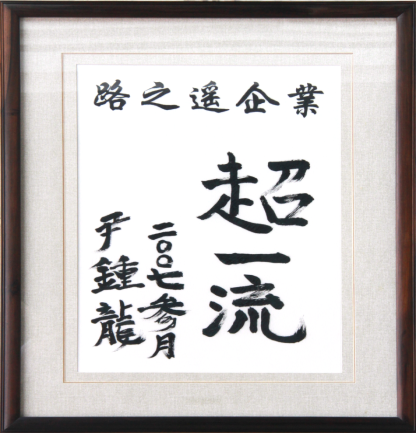 路之遥企業
超一流
二〇〇七参月
尹鍾龍